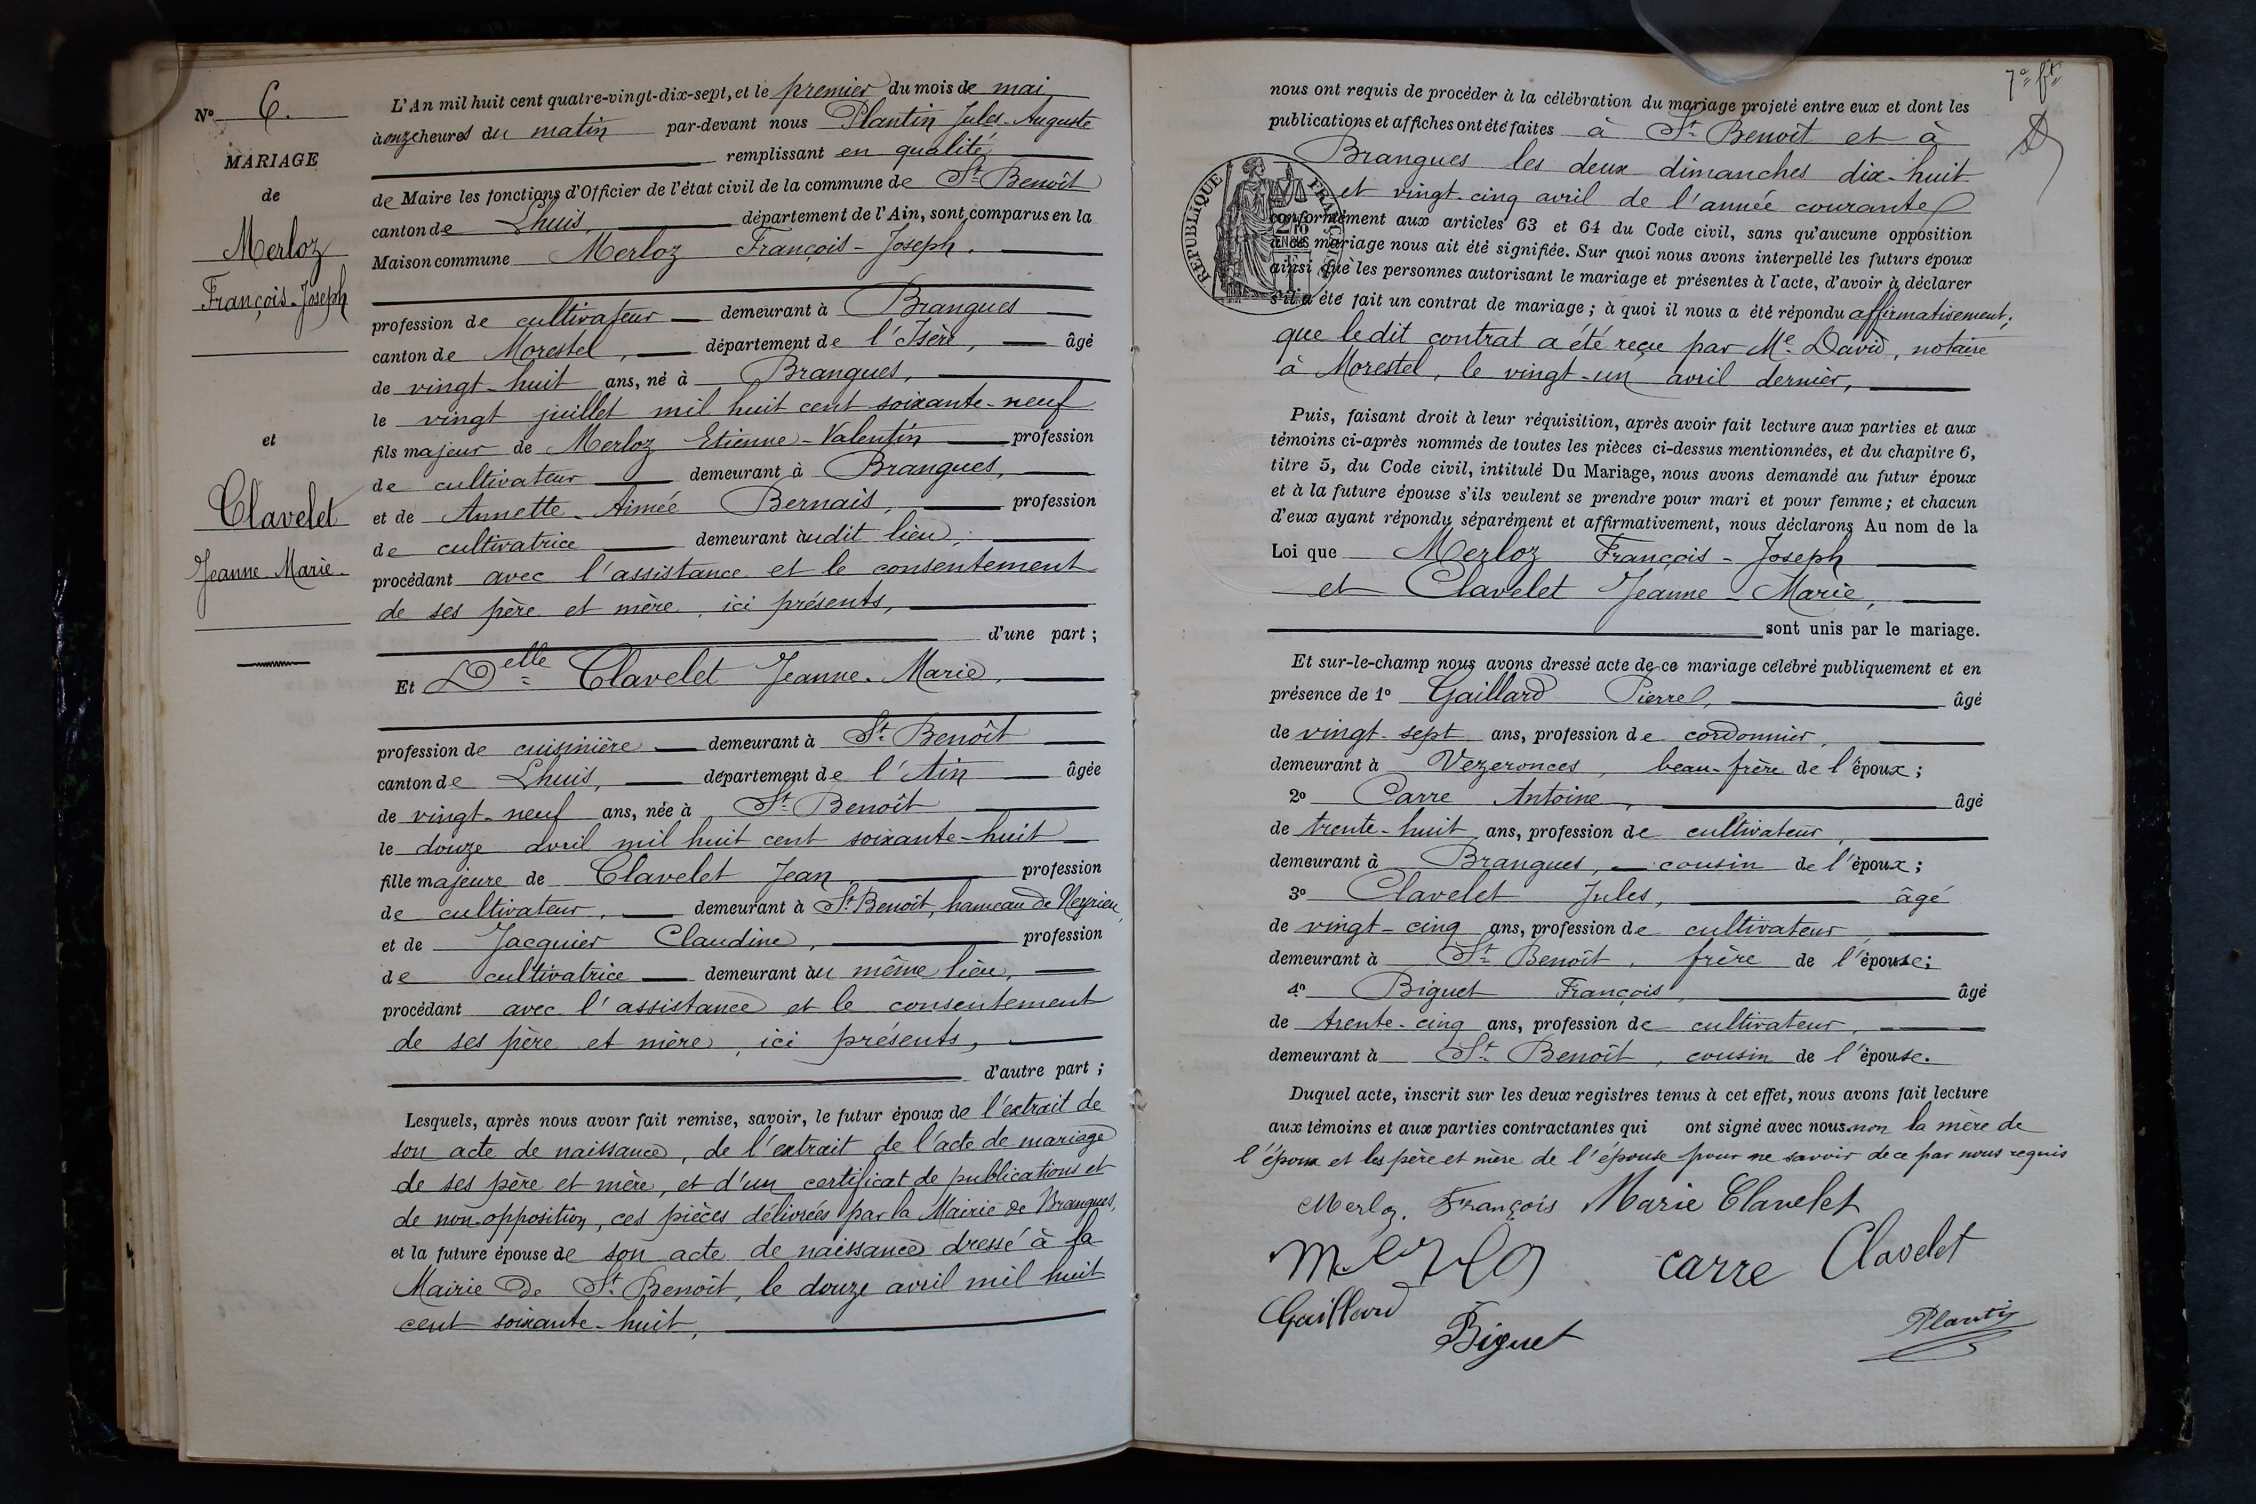 Nº 6.
MARIAGE
de
Merloz
François-Joseph
et
Clavelet
Jeanne-Marie
L'An mil huit cent quatre-vingt-dix-sept, et le premier du mois de mai
à onze heures du matin par-devant nous Plantin Jules-Auguste
remplissant en qualité
de Maire les fonctions d'Officier de l'état civil de la commune de St Benoît
canton de Lhuis, département de l'Ain, sont comparus en la
Maison commune Merloz François-Joseph.
profession de cultivateur demeurant à Brangues
canton de Morestel, département de l'Isère, âgé
de vingt-huit ans, né à Brangues,
le vingt juillet mil huit cent soixante-neuf
fils majeur de Merloz Etienne-Valentin profession
de cultivateur demeurant à Brangues,
et de Annette-Aimée Bernais, profession
de cultivatrice demeurant audit lieu,
procédant avec l'assistance et le consentement
de ses père et mère, ici présents,
d'une part ;
Et Delle Clavelet Jeanne-Marie,
profession de cuisinière demeurant à St Benoît
canton de Lhuis, département de l'Ain âgée
de vingt-neuf ans, née à St Benoît
le douze avril mil huit cent soixante-huit
fille majeure de Clavelet Jean, profession
de cultivateur, demeurant à St Benoît, hameau de Neyrieu,
et de Jacquier Claudine, profession
de cultivatrice demeurant au même lieu,
procédant avec l'assistance et le consentement
de ses père et mère, ici présents,
d'autre part ;
Lesquels, après nous avoir fait remise, savoir, le futur époux de l'extrait de
son acte de naissance, de l'extrait de l'acte de mariage
de ses père et mère, et d'un certificat de publications et
de non-opposition, ces pièces délivrées par la Mairie de Brangues,
et la future épouse de son acte de naissance dressé à la
Mairie de St Benoît, le douze avril mil huit
cent soixante-huit,
7e ft
nous ont requis de procéder à la célébration du mariage projeté entre eux et dont les
publications et affiches ont été faites à St Benoît et à
Brangues les deux dimanches dix-huit
et vingt-cinq avril de l'année courante
RÉPUBLIQUE FRANÇAISE
conformément aux articles 63 et 64 du Code civil, sans qu'aucune opposition
à ce mariage nous ait été signifiée. Sur quoi nous avons interpellé les futurs époux
ainsi que les personnes autorisant le mariage et présentes à l'acte, d'avoir à déclarer
s'il a été fait un contrat de mariage ; à quoi il nous a été répondu affirmativement ;
que le dit contrat a été reçu par Me David, notaire
à Morestel, le vingt-un avril dernier,
Puis, faisant droit à leur réquisition, après avoir fait lecture aux parties et aux
témoins ci-après nommés de toutes les pièces ci-dessus mentionnées, et du chapitre 6,
titre 5, du Code civil, intitulé Du Mariage, nous avons demandé au futur époux
et à la future épouse s'ils veulent se prendre pour mari et pour femme ; et chacun
d'eux ayant répondu séparément et affirmativement, nous déclarons Au nom de la
Loi que Merloz François-Joseph
et Clavelet Jeanne-Marie,
sont unis par le mariage.
Et sur-le-champ nous avons dressé acte de ce mariage célébré publiquement et en
présence de 1º Gaillard Pierre, âgé
de vingt-sept ans, profession de cordonnier,
demeurant à Vezeronces, beau-frère de l'époux ;
2º Carre Antoine, âgé
de trente-huit ans, profession de cultivateur,
demeurant à Brangues, cousin de l'époux ;
3º Clavelet Jules, âgé
de vingt-cinq ans, profession de cultivateur,
demeurant à St Benoît, frère de l'épouse ;
4º Biguet François, âgé
de trente-cinq ans, profession de cultivateur,
demeurant à St Benoît, cousin de l'épouse.
Duquel acte, inscrit sur les deux registres tenus à cet effet, nous avons fait lecture
aux témoins et aux parties contractantes qui ont signé avec nous non la mère de
l'époux et les père et mère de l'épouse pour ne savoir de ce par nous requis
Merloz. François Marie Clavelet
Merloz carre Clavelet
Gaillard Biguet Plantin